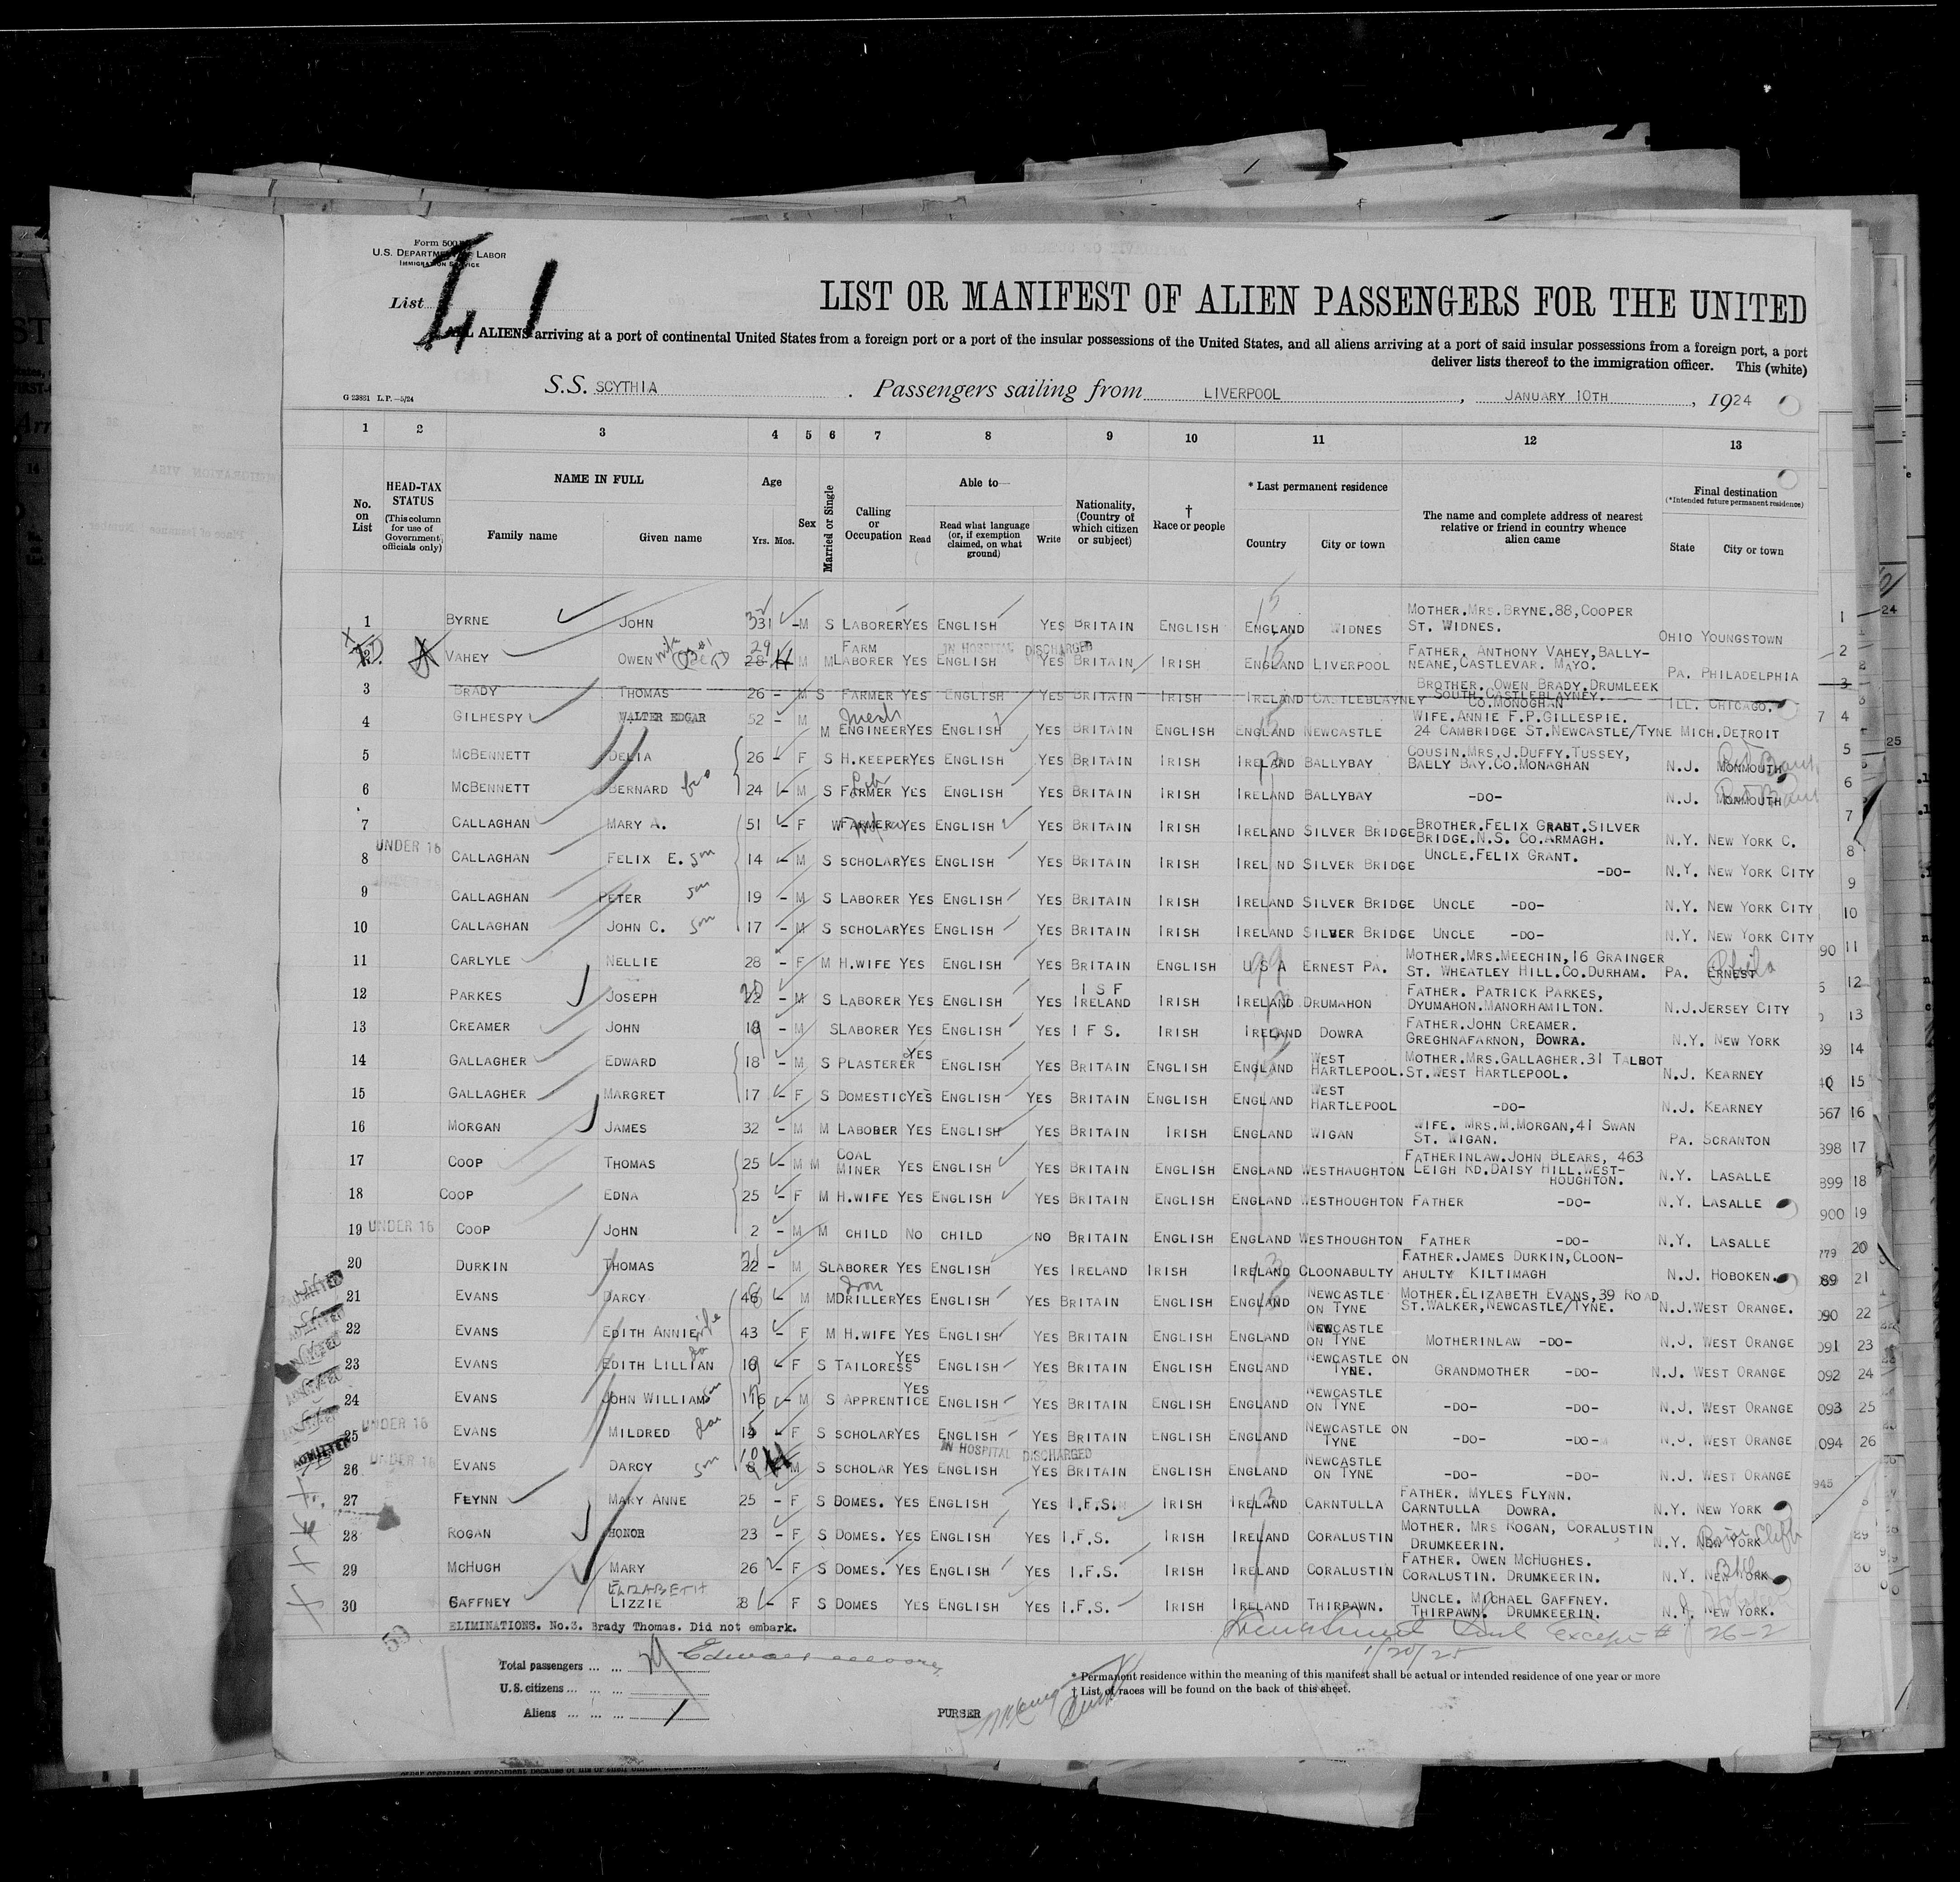 Form 500
U.S. DEPARTMENT OF LABOR
IMMIGRATION SERVICE
List
LIST OR MANIFEST OF ALIEN PASSENGERS FOR THE UNITED
ALL ALIENS arriving at a port of continental United States from a foreign port or a port of the insular possessions of the United States, and all aliens arriving at a port of said insular possessions from a foreign port, a port
deliver lists thereof to the immigration officer. This (white)
S.S. SCYTHIA . Passengers sailing from LIVERPOOL , JANUARY 10TH , 1924
G 23861 L.P.—5/24
1 2 3 4 5 6 7 8 9 10 11 12 13
No. on List
HEAD-TAX STATUS (This column for use of Government officials only)
NAME IN FULL
Family name Given name
Age
Yrs. Mos.
Sex
Married or Single
Calling or Occupation
Able to—
Read Read what language (or, if exemption claimed, on what ground) Write
Nationality, (Country of which citizen or subject)
† Race or people
* Last permanent residence
Country City or town
The name and complete address of nearest relative or friend in country whence alien came
Final destination
(*Intended future permanent residence)
State City or town
1 BYRNE JOHN M S LABORER YES ENGLISH YES BRITAIN ENGLISH ENGLAND WIDNES MOTHER.MRS.BRYNE.88,COOPER ST. WIDNES. OHIO YOUNGSTOWN
2 VAHEY OWEN wife 29 28 M M FARM LABORER YES ENGLISH IN HOSPITAL DISCHARGED YES BRITAIN IRISH ENGLAND LIVERPOOL FATHER. ANTHONY VAHEY,BALLY-NEANE,CASTLEVAR. MAYO. PA. PHILADELPHIA
3 BRADY THOMAS 26 - M S FARMER YES ENGLISH YES BRITAIN IRISH IRELAND CASTLEBLAYNEY BROTHER. OWEN BRADY,DRUMLEEK SOUTH.CASTLEBLAYNEY. CO.MONOGHAN ILL. CHICAGO.
4 GILHESPY WALTER EDGAR 52 - M M Mech ENGINEER YES ENGLISH YES BRITAIN ENGLISH ENGLAND NEWCASTLE WIFE.ANNIE F.P.GILLESPIE. 24 CAMBRIDGE ST.NEWCASTLE/TYNE MICH.DETROIT
5 MCBENNETT DELIA 26 - F S H.KEEPER YES ENGLISH YES BRITAIN IRISH IRELAND BALLYBAY COUSIN.MRS.J.DUFFY,TUSSEY, BALLY BAY.CO.MONAGHAN N.J. MONMOUTH
6 MCBENNETT BERNARD bro 24 - M S FARMER YES ENGLISH YES BRITAIN IRISH IRELAND BALLYBAY -DO- N.J. MONMOUTH
7 CALLAGHAN MARY A. 51 - F W FARMER YES ENGLISH YES BRITAIN IRISH IRELAND SILVER BRIDGE BROTHER.FELIX GRANT.SILVER BRIDGE.N.S. CO.ARMAGH. N.Y. NEW YORK C.
8 UNDER 16 CALLAGHAN FELIX E. son 14 - M S SCHOLAR YES ENGLISH YES BRITAIN IRISH IRELAND SILVER BRIDGE UNCLE.FELIX GRANT. -DO- N.Y. NEW YORK CITY
9 CALLAGHAN PETER son 19 - M S LABORER YES ENGLISH YES BRITAIN IRISH IRELAND SILVER BRIDGE UNCLE -DO- N.Y. NEW YORK CITY
10 CALLAGHAN JOHN C. son 17 - M S SCHOLAR YES ENGLISH YES BRITAIN IRISH IRELAND SILVER BRIDGE UNCLE -DO- N.Y. NEW YORK CITY
11 CARLYLE NELLIE 28 - F M H.WIFE YES ENGLISH YES BRITAIN ENGLISH U S A ERNEST PA. MOTHER.MRS.MEECHIN,16 GRAINGER ST. WHEATLEY HILL.CO.DURHAM. PA. ERNEST
12 PARKES JOSEPH 22 - M S LABORER YES ENGLISH YES I S F IRELAND IRISH IRELAND DRUMAHON FATHER. PATRICK PARKES, DYUMAHON.MANORHAMILTON. N.J.JERSEY CITY
13 CREAMER JOHN 19 - M S LABORER YES ENGLISH YES I F S. IRISH IRELAND DOWRA FATHER.JOHN CREAMER. GREGHNAFARNON, DOWRA. N.Y. NEW YORK
14 GALLAGHER EDWARD 18 - M S PLASTERER YES ENGLISH YES BRITAIN ENGLISH ENGLAND WEST HARTLEPOOL. MOTHER.MRS.GALLAGHER.31 TALBOT ST.WEST HARTLEPOOL. N.J. KEARNEY
15 GALLAGHER MARGRET 17 - F S DOMESTIC YES ENGLISH YES BRITAIN ENGLISH ENGLAND WEST HARTLEPOOL -DO- N.J. KEARNEY
16 MORGAN JAMES 32 - M M LABORER YES ENGLISH YES BRITAIN IRISH ENGLAND WIGAN WIFE. MRS.M.MORGAN,41 SWAN ST. WIGAN. PA. SCRANTON
17 COOP THOMAS 25 - M M COAL MINER YES ENGLISH YES BRITAIN ENGLISH ENGLAND WESTHAUGHTON FATHERINLAW.JOHN BLEARS, 463 LEIGH RD.DAISY HILL.WEST-HOUGHTON. N.Y. LASALLE
18 COOP EDNA 25 - F M H.WIFE YES ENGLISH YES BRITAIN ENGLISH ENGLAND WESTHOUGHTON FATHER -DO- N.Y. LASALLE
19 UNDER 16 COOP JOHN 2 - M M CHILD NO CHILD NO BRITAIN ENGLISH ENGLAND WESTHOUGHTON FATHER -DO- N.Y. LASALLE
20 DURKIN THOMAS 21 22 - M S LABORER YES ENGLISH YES IRELAND IRISH IRELAND CLOONABULTY FATHER.JAMES DURKIN,CLOON-AHULTY KILTIMAGH N.J. HOBOKEN.
21 EVANS DARCY 46 - M M Iron DRILLER YES ENGLISH YES BRITAIN ENGLISH ENGLAND NEWCASTLE ON TYNE MOTHER.ELIZABETH EVANS,39 ROAD ST.WALKER,NEWCASTLE/TYNE. N.J.WEST ORANGE.
22 EVANS EDITH ANNIE wife 43 - F M H.WIFE YES ENGLISH YES BRITAIN ENGLISH ENGLAND NEWCASTLE ON TYNE MOTHERINLAW -DO- N.J. WEST ORANGE
23 EVANS EDITH LILLIAN dau 19 - F S TAILORESS YES ENGLISH YES BRITAIN ENGLISH ENGLAND NEWCASTLE ON TYNE. GRANDMOTHER -DO- N.J. WEST ORANGE
24 EVANS JOHN WILLIAM son - M S APPRENTICE YES ENGLISH YES BRITAIN ENGLISH ENGLAND NEWCASTLE ON TYNE -DO- -DO- N.J. WEST ORANGE
25 UNDER 16 EVANS MILDRED dau - F S SCHOLAR YES ENGLISH YES BRITAIN ENGLISH ENGLAND NEWCASTLE ON TYNE -DO- -DO- N.J. WEST ORANGE
26 UNDER 16 EVANS DARCY son M S SCHOLAR YES ENGLISH IN HOSPITAL DISCHARGED YES BRITAIN ENGLISH ENGLAND NEWCASTLE ON TYNE -DO- -DO- N.J. WEST ORANGE
27 FLYNN MARY ANNE 25 - F S DOMES. YES ENGLISH YES I.F.S. IRISH IRELAND CARNTULLA FATHER. MYLES FLYNN. CARNTULLA DOWRA. N.Y. NEW YORK
28 ROGAN HONOR 23 - F S DOMES. YES ENGLISH YES I.F.S. IRISH IRELAND CORALUSTIN MOTHER. MRS ROGAN, CORALUSTIN DRUMKEERIN. N.Y. NEW YORK
29 MCHUGH MARY 26 - F S DOMES. YES ENGLISH YES I.F.S. IRISH IRELAND CORALUSTIN FATHER. OWEN MCHUGHES. CORALUSTIN. DRUMKEERIN. N.Y. NEW YORK
30 GAFFNEY ELIZABETH LIZZIE 28 - F S DOMES YES ENGLISH YES I.F.S. IRISH IRELAND THIRPAWN. UNCLE. MICHAEL GAFFNEY. THIRPAWN. DRUMKEERIN. N.J. NEW YORK.
ELIMINATIONS. No.3. Brady Thomas. Did not embark.
except # 26-2
1/20/25
Total passengers ... ...
U.S. citizens ... ... ...
Aliens ... ... ...
PURSER
* Permanent residence within the meaning of this manifest shall be actual or intended residence of one year or more
† List of races will be found on the back of this sheet.